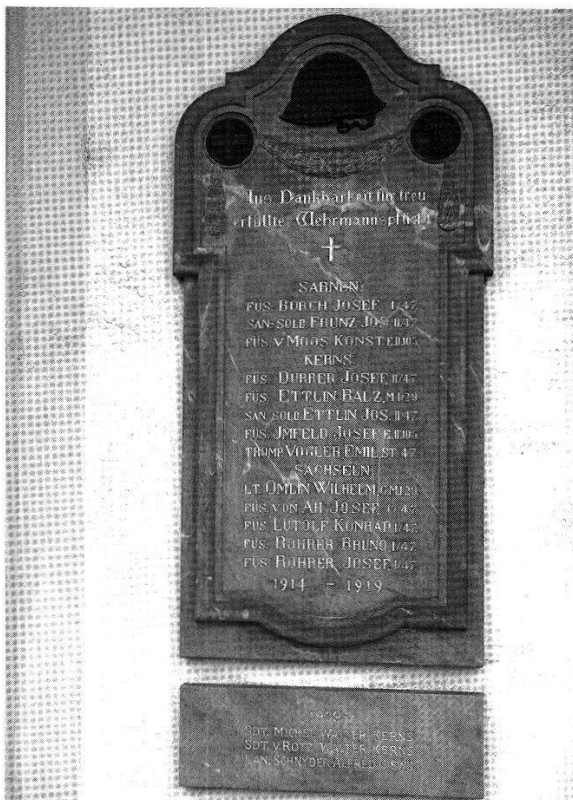 Aus Dankbarkeit für treu
erfüllte Wehrmannspflicht
SARNEN:
FÜS. BURCH JOSEF I/47
SAN. SOLD FRUNZ JOS. II/47
FÜS. V. MOOS KONST.
KERNS
FÜS. DURRER JOSEF, II/47
FÜS. ETTLIN BALZ,
SAN. SOLD ETTLIN JOS. II/47
FÜS. JMFELD JOSEF
TROMP. VOGLER EMIL, ST. 47
SACHSELN
LT. OMLIN WILHELM,
FÜS. VON AH JOSEF I/47
FÜS. LÜTOLF KONRAD, I/47
FÜS. ROHRER BRUNO, I/47
FÜS. ROHRER JOSEF, I/47
1914 - 1919
SDT. MICHEL WALTER KERNS
SDT. V. ROTZ WALTER KERNS
KAN. SCHNYDER ALFRED